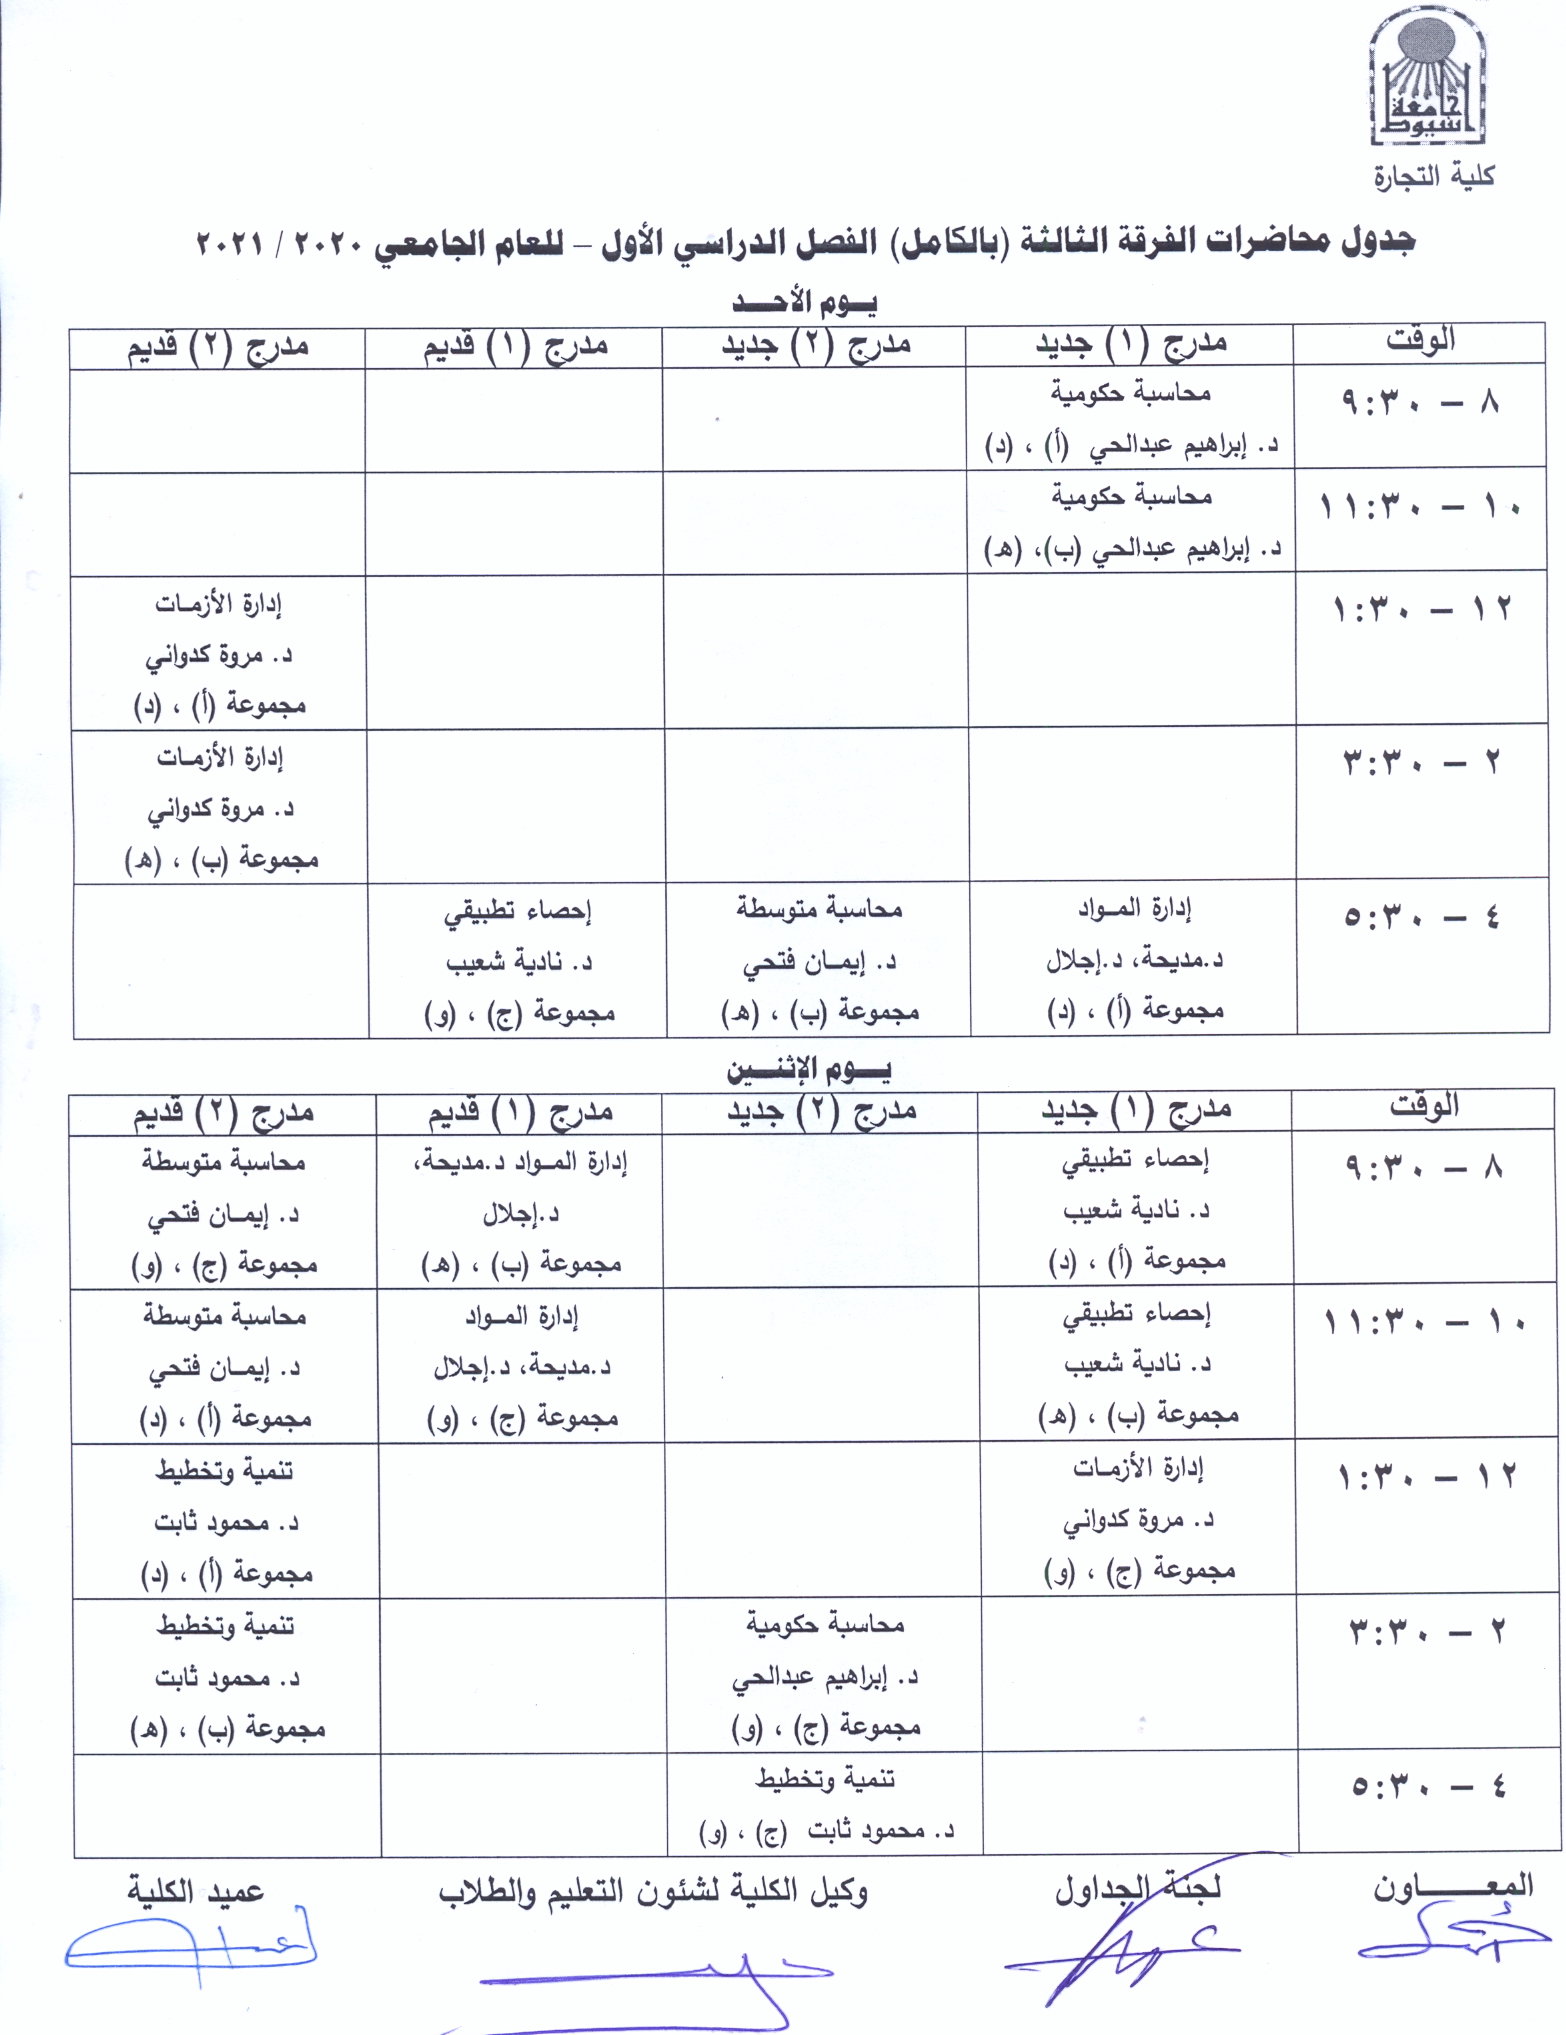 جامعة
اسيوط
كلية التجارة
جدول محاضرات الفرقة الثالثة (بالكامل) الفصل الدراسي الأول – للعام الجامعي ٢٠٢٠ / ٢٠٢١
يــوم الأحــد
الوقت مدرج (١) جديد مدرج (٢) جديد مدرج (١) قديم مدرج (٢) قديم
٨ – ٩:٣٠
محاسبة حكومية
د. إبراهيم عبدالحي (أ) ، (د)
١٠ – ١١:٣٠
محاسبة حكومية
د. إبراهيم عبدالحي (ب)، (هـ)
١٢ – ١:٣٠
إدارة الأزمـات
د. مروة كدواني
مجموعة (أ) ، (د)
٢ – ٣:٣٠
إدارة الأزمـات
د. مروة كدواني
مجموعة (ب) ، (هـ)
٤ – ٥:٣٠
إدارة المـواد
د.مديحة، د.إجلال
مجموعة (أ) ، (د)
محاسبة متوسطة
د. إيمـان فتحي
مجموعة (ب) ، (هـ)
إحصاء تطبيقي
د. نادية شعيب
مجموعة (ج) ، (و)
يــوم الإثنــين
الوقت مدرج (١) جديد مدرج (٢) جديد مدرج (١) قديم مدرج (٢) قديم
٨ – ٩:٣٠
إحصاء تطبيقي
د. نادية شعيب
مجموعة (أ) ، (د)
إدارة المـواد د.مديحة،
د.إجلال
مجموعة (ب) ، (هـ)
محاسبة متوسطة
د. إيمـان فتحي
مجموعة (ج) ، (و)
١٠ – ١١:٣٠
إحصاء تطبيقي
د. نادية شعيب
مجموعة (ب) ، (هـ)
إدارة المـواد
د.مديحة، د.إجلال
مجموعة (ج) ، (و)
محاسبة متوسطة
د. إيمـان فتحي
مجموعة (أ) ، (د)
١٢ – ١:٣٠
إدارة الأزمـات
د. مروة كدواني
مجموعة (ج) ، (و)
تنمية وتخطيط
د. محمود ثابت
مجموعة (أ) ، (د)
٢ – ٣:٣٠
محاسبة حكومية
د. إبراهيم عبدالحي
مجموعة (ج) ، (و)
تنمية وتخطيط
د. محمود ثابت
مجموعة (ب) ، (هـ)
٤ – ٥:٣٠
تنمية وتخطيط
د. محمود ثابت (ج) ، (و)
المعـــــاون لجنة الجداول وكيل الكلية لشئون التعليم والطلاب عميد الكلية